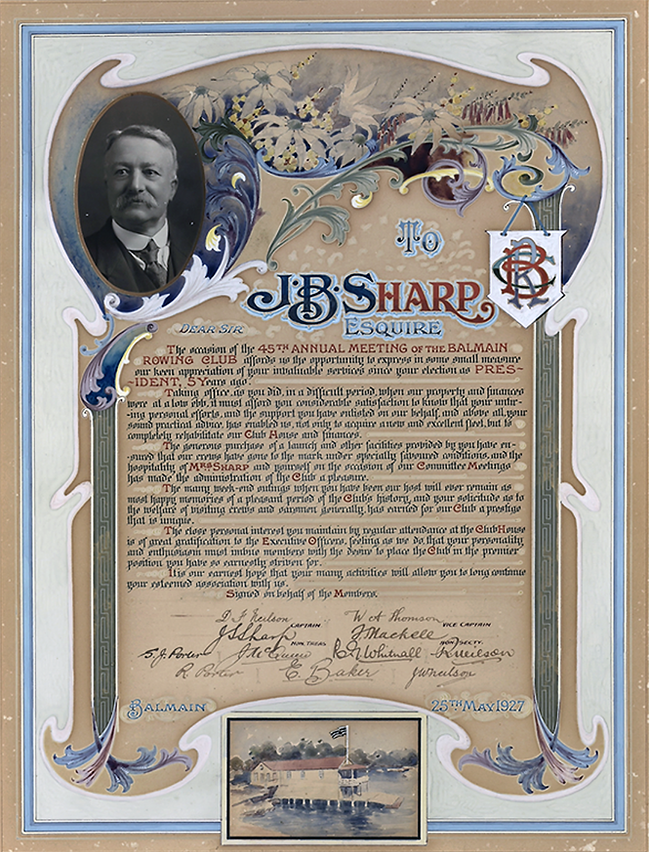 To
J·B·Sharp,
Esquire
BRC
Dear Sir
The occasion of the 45th Annual Meeting of the Balmain
Rowing Club affords us the opportunity to express in some small measure
our keen appreciation of your invaluable services since your election as Pres-
ident, 5 Years ago.
Taking office, as you did, in a difficult period, when our property and finances
were at a low ebb, it must afford you considerable satisfaction to know that your untir-
ing personal efforts, and the support you have enlisted on our behalf, and above all, your
sound practical advice, has enabled us, not only to acquire a new and excellent fleet, but to
completely rehabilitate our Club House and finances.
The generous purchase of a launch and other facilities provided by you have en-
sured that our crews have gone to the mark under specially favoured conditions, and the
hospitality of Mrs Sharp and yourself on the occasion of our Committee Meetings
has made the administration of the Club a pleasure.
The many week-end outings when you have been our host will ever remain as
most happy memories of a pleasant period of the Club's history, and your solicitude as to
the welfare of visiting crews and oarsmen generally, has earned for our Club a prestige
that is unique.
The close personal interest you maintain by regular attendance at the Club House
is of great gratification to the Executive Officers, feeling as we do that your personality
and enthusiasm must imbue members with the desire to place the Club in the premier
position you have so earnestly striven for.
It is our earnest hope that your many activities will allow you to long continue
your esteemed association with us.
Signed on behalf of the Members.
D. F. Neilson CAPTAIN. W. A Thomson VICE CAPTAIN
J S Sharp HON. TREAS. J Mackell HON. SECTY.
S. J. Porter J. McQueen R. N. Whitnall Neilson
R Porter E. Baker J Wneilson
Balmain 25th May 1927